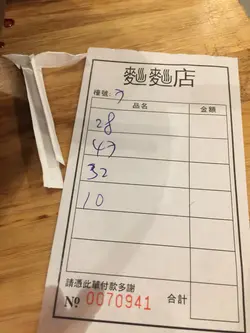 麵麵店
檯號:7
品名 金額
28
47
32
10
請憑此單付款多謝
№ 0070941 合計